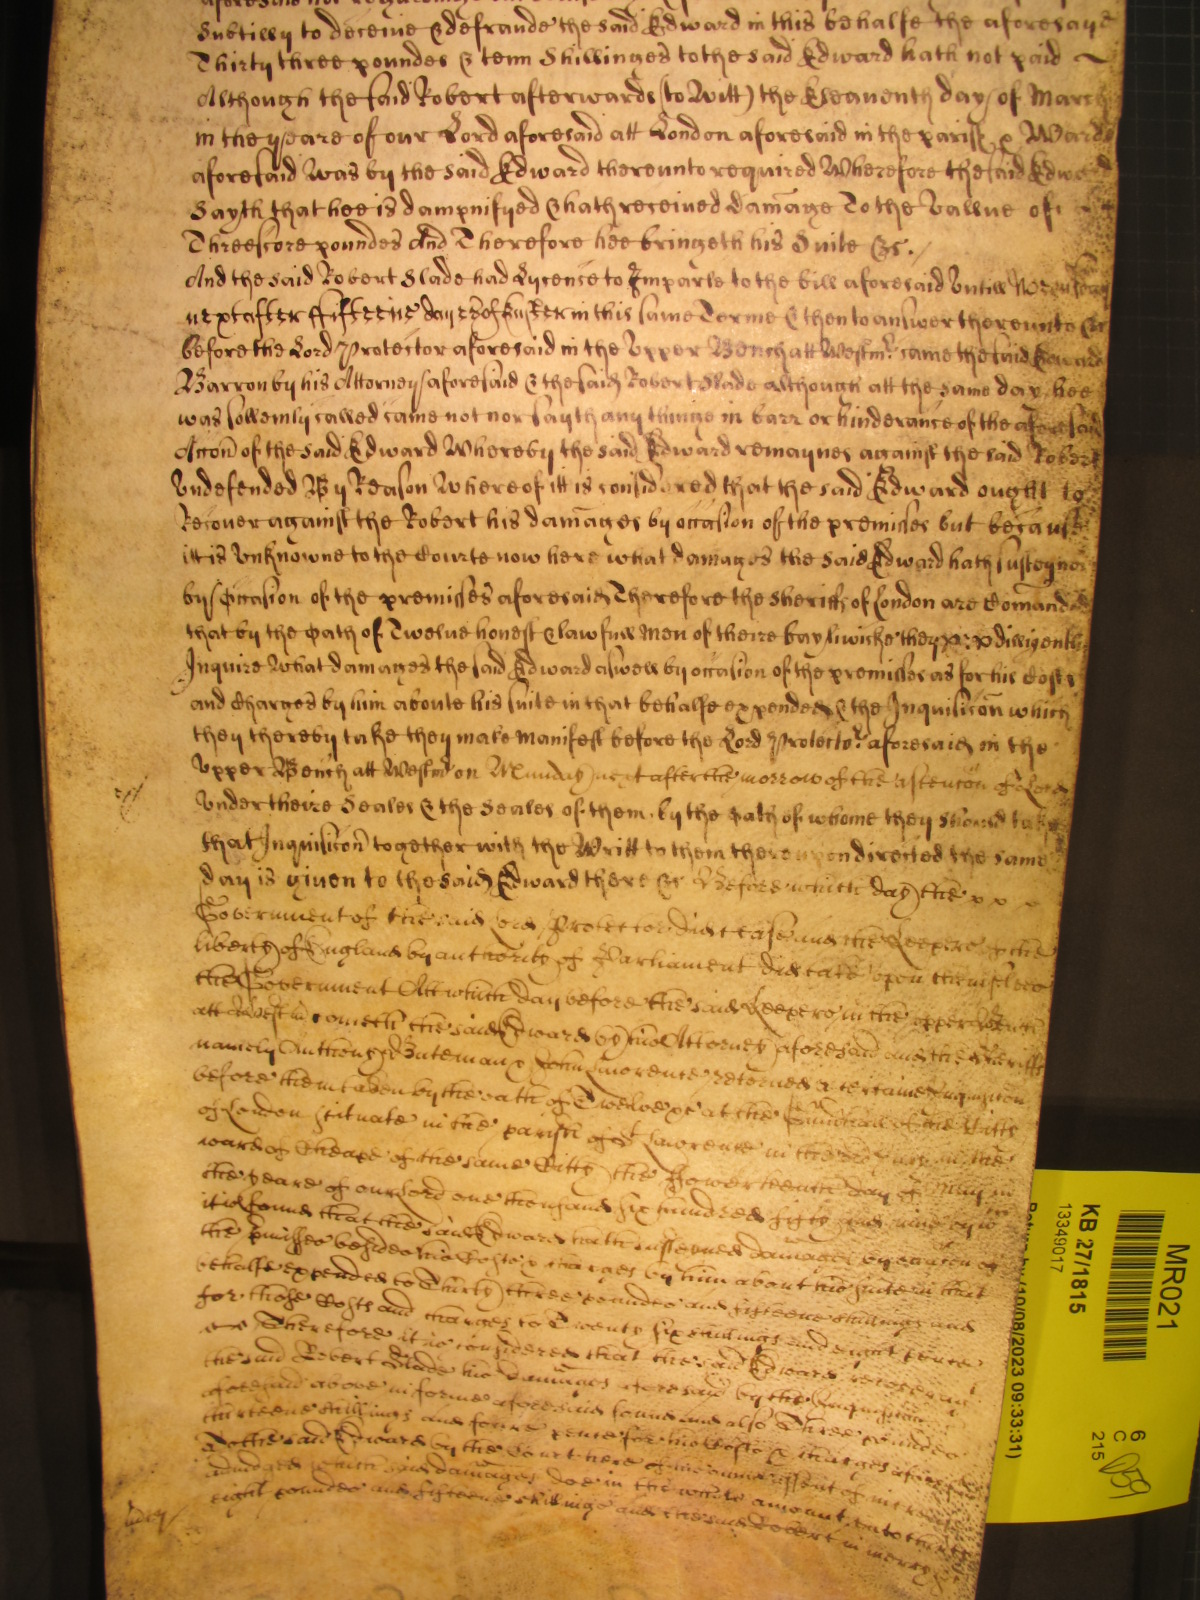 Subtilly to deceive & defraude the said Edward in this behalfe the aforesayd
Thirty three poundes & tenn Shillinges to the said Edward hath not paid
Although the said Robert afterwards (to Witt) the Eleaventh day of March
in the yeare of our Lord aforesaid att London aforesaid in the parish & Warde
aforesaid Was by the said Edward thereunto required Wherefore the said Edward
Sayth that hee is dampnifyed & hath received damage To the Vallue of
Threescore poundes And Therefore hee bringeth his Suite &c.
And the said Robert Slade had Lycence to Imparle to the bill aforesaid Untill
next after fifteene dayes of Easter in this same Terme & then to answer thereunto &c
before the Lord Protector aforesaid in the Upper Bench att Westmr. came the said Edward
Barron by his Attorney aforesaid & the said Robert Slade although att the same day hee
was sollemly called came not nor sayth any thinge in barr or hinderance of the aforesaid
Accon of the said Edward Whereby the said Edward remaynes against the said Robert
Undefended By Reason Whereof itt is considered that the said Edward ought to
Recover against the Robert his damages by occasion of the premisses but because
itt is Unknowne to the Courte now here what damages the said Edward hath susteyned
by Occasion of the premisses aforesaid Therefore the Sheriffs of London are Comanded
that by the Oath of Twelve honest & lawfull Men of theire baylliwicke they diligently
Inquire What damages the said Edward aswell by occasion of the premisses as for his Costs
and Charges by him aboute his suite in that behalfe expended & the Inquisicon which
they thereby take they make manifest before the Lord Protector aforesaid in the
Upper Bench att Westmr on Munday next after the morrow of the Ascencon of Lord
Under theire Seales & the Seales of them by the Oath of whome they should take
that Inquisicon together with the Writt to them thereupon directed the same
day is given to the said Edward there &c Before which day the
Government of the said Lord Protector did cease and the Keepers of the
liberty of England by authority of Parliament did take upon themselves
the Government Att which day before the said Keepers in the upper Bench
att Westmr cometh the said Edward by his Attorney aforesaid and the Sheriffs
namely Anthony Bateman & John Lawrence retorned a certaine Inquisicon
before them taken by the oath of Twelve &c at the Guildhall of the Citty
of London scituate in the parish of St Lawrence in the old Jury in the
ward of Cheape of the same Citty the ffowerteenth day of May in
the yeare of our Lord one thousand six hundred fifty and nine by wch
it is found that the said Edward hath susteyned damages by occasion of
the pmisses besides his Costs & charges by him about his suite in that
behalfe expended to Thirty three poundes and fifteene shillings and
for those Costs and charges to Twenty six shillings and eight pence
Therefore it is considered that the said Edward recover against
the said Robert Slade his damages aforesaid by the Inquisicon
aforesaid above in forme aforesaid found and also Three poundes
thirteene shillings and foure pence for his Costs & charges aforesaid
To the said Edward by the Court here of his owne assent of increase
adiudged which said damages doe in the whole amount unto thirty
eight poundes and fifteene shillings and the said Robert in mercy &c
KB 27/1815
13349017
MR021
6
C
215
059
10/08/2023 09:33:31)